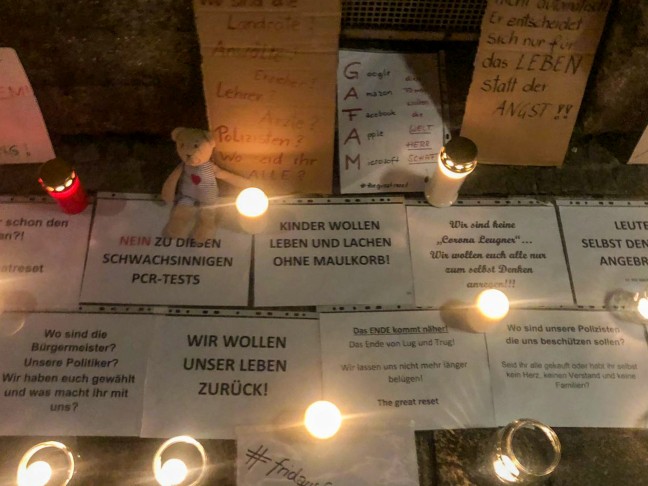 Wo sind die
Landräte?
Anwälte?
Erzieher?
Lehrer?
Ärzte?
Polizisten?
Wo seid ihr
ALLE?
Google
Amazon
Facebook die
Apple WELT
HERR
Microsoft SCHAFT
#thegreatreset
nicht automatisch
Er entscheidet
sich nur für
das LEBEN
statt der
ANGST !!
schon den
n?!
eatreset
NEIN ZU DIESEN
SCHWACHSINNIGEN
PCR-TESTS
KINDER WOLLEN
LEBEN UND LACHEN
OHNE MAULKORB!
Wir sind keine
„Corona Leugner"...
Wir wollen euch alle nur
zum selbst Denken
anregen!!!
LEUTE
SELBST DEN
ANGEBR
Wo sind die
Bürgermeister?
Unsere Politiker?
Wir haben euch gewählt
und was macht ihr mit
uns?
WIR WOLLEN
UNSER LEBEN
ZURÜCK!
Das ENDE kommt näher!
Das Ende von Lug und Trug!
Wir lassen uns nicht mehr länger
belügen!
The great reset
Wo sind unsere Polizisten
die uns beschützen sollen?
Seid ihr alle gekauft oder habt ihr selbst
kein Herz, keinen Verstand und keine
Familien?